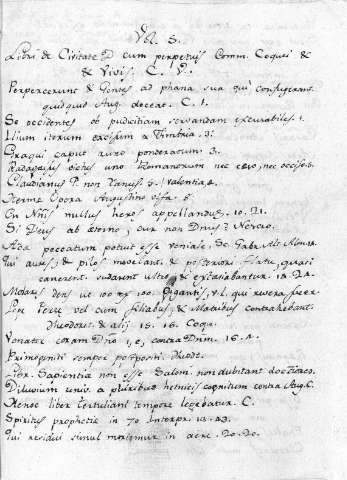 Vol. 5.
Libri de Civitate D cum perpetuis Comm. Coquei &
& Vivis. C. V.
Pepercerunt & Gentes ad phana sua qui confugerant
quidquid Aug. doceat. C. 1.
Se occidentes ob pudicitiam servandam excusabiles. 1.
Ilium iterum excisum a Fimbria. 3.
Graqui caput auro ponderatum. 3.
Radagasius victus uno Romanorum nec caeso, nec occiso. 5.
Claudianus P. non Xanus. 5. Valentia,
Hermae Opera Augustino visa. 5
Cur Nris nullus heros appellandus. 10. 21.
Si Deus ab aeterno, cur non Dnus?
Adae peccatum potuit esse veniale.
Qui aures, & pilos movebant, & posteriori flatu, quasi
canerent. sudarent ultro, & extasiabantur. 14. 24.
Molaris dens ut 100 ex gigantis, v.l. qui
vel cum filiabus, & Matribus contrahebant.
Theodoret. & alij. 15. 16. Coqu.
Venator coram Dno, i, e, contra Dnm. 16. 4.
Primogeniti semper postpositi.
Libr. Sapientia non esse Salom. non dubitant doctiores.
Diluvium univ. a pluribus
Henoc liber Tertuliani tempore legebatur. C.
Spiritus prophetiae in 70 Interpr. 18. 43.
Qui residui simul in aere. 20. 20.